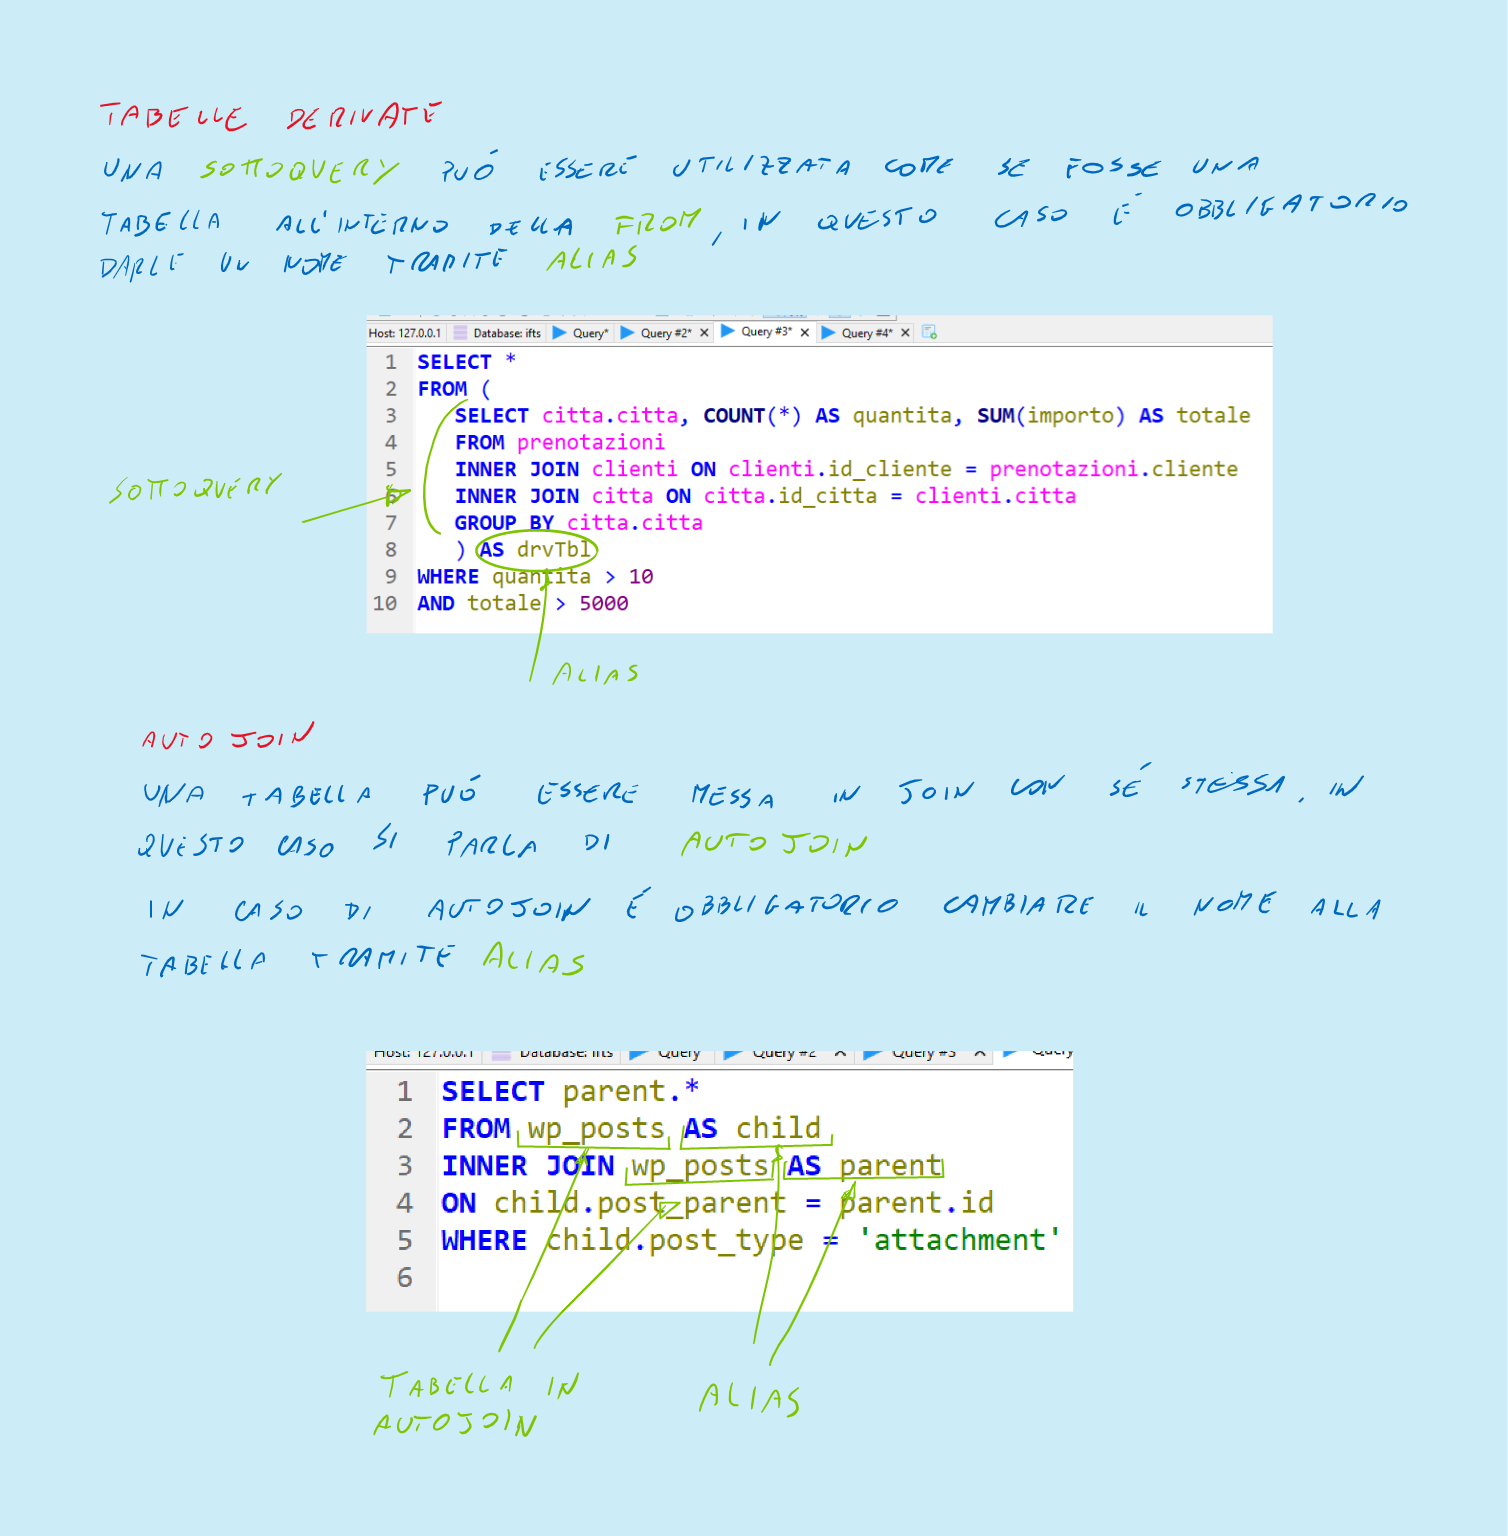 TABELLE DERIVATE
UNA SOTTOQUERY PUÓ ESSERE UTILIZZATA COME SE FOSSE UNA
TABELLA ALL'INTERNO DELLA FROM, IN QUESTO CASO É OBBLIGATORIO
DARLE UN NOME TRAMITE ALIAS
Host: 127.0.0.1 Database: ifts Query* Query #2* Query #3* Query #4*
1 SELECT *
2 FROM (
3 SELECT citta.citta, COUNT(*) AS quantita, SUM(importo) AS totale
4 FROM prenotazioni
5 INNER JOIN clienti ON clienti.id_cliente = prenotazioni.cliente
SOTTOQUERY
6 INNER JOIN citta ON citta.id_citta = clienti.citta
7 GROUP BY citta.citta
8 ) AS drvTbl
9 WHERE quantita > 10
10 AND totale > 5000
ALIAS
AUTO JOIN
UNA TABELLA PUÓ ESSERE MESSA IN JOIN CON SÉ STESSA, IN
QUESTO CASO SI PARLA DI AUTO JOIN
IN CASO DI AUTOJOIN É OBBLIGATORIO CAMBIARE IL NOME ALLA
TABELLA TRAMITE ALIAS
Host: 127.0.0.1 Database: ifts Query Query #2 Query #3 Query
1 SELECT parent.*
2 FROM wp_posts AS child
3 INNER JOIN wp_posts AS parent
4 ON child.post_parent = parent.id
5 WHERE child.post_type = 'attachment'
6
TABELLA IN
AUTOJOIN
ALIAS